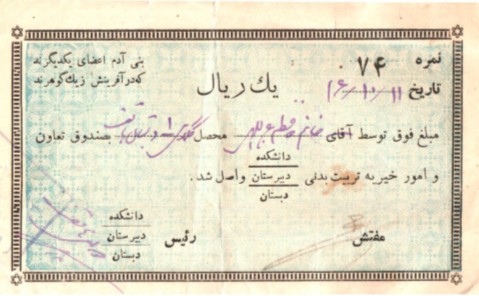 نمره ۷۴
بنی آدم اعضای یکدیگرند
که در آفرینش ز یک گوهرند
تاریخ ۱۶/۱۰/۱۱
یک ریال
مبلغ فوق توسط آقای خانم محصل بصندوق تعاون
و امور خیریه تربیت بدنی دانشکده دبیرستان دبستان واصل شد .
مفتش
رئیس دانشکده دبیرستان دبستان